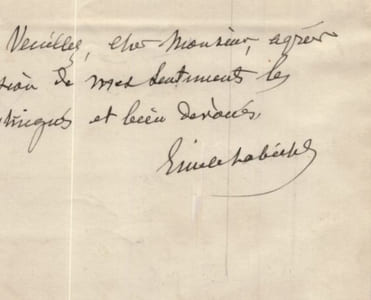 Veuillez, cher Monsieur, agréer
sion de mes sentiments les
tingués et bien dévoués.